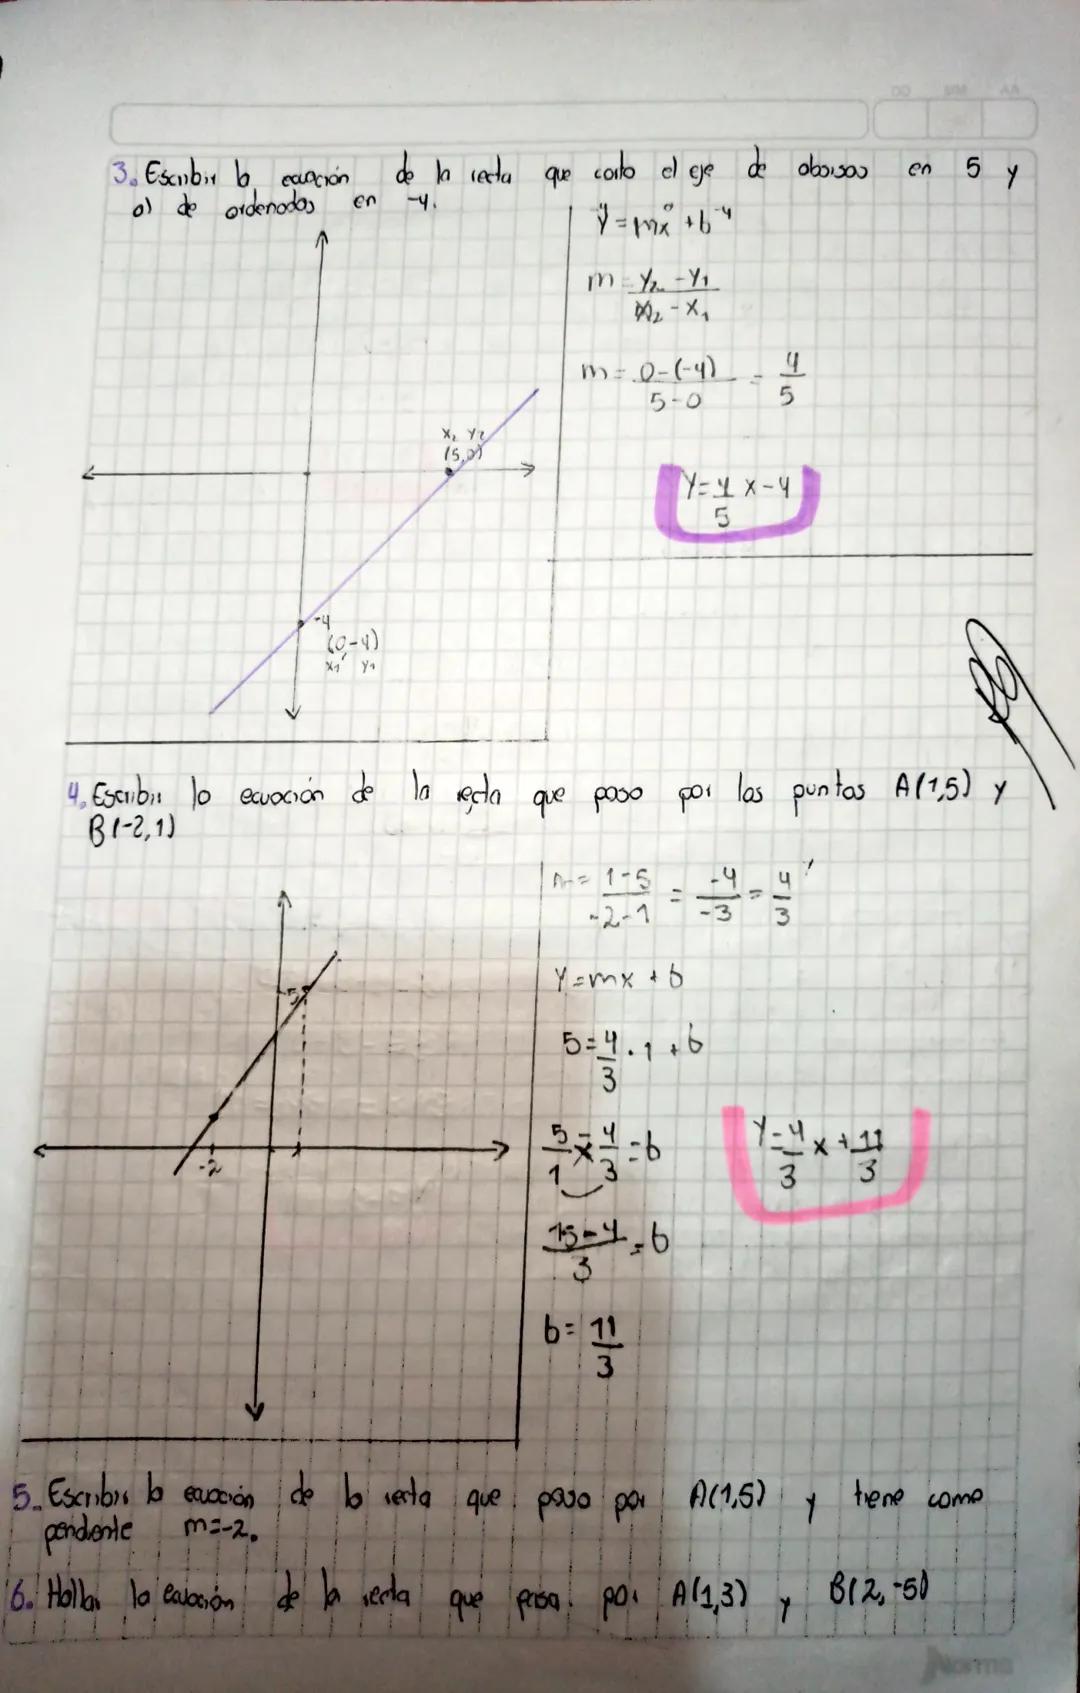 DD MM AA
3. Escribir la ecuación de la recta que corta el eje de abcisas en 5 y
al de ordenadas en -4.
y = mx + b
-4
0
m = y₂ - y₁
x₂ - x₁
m = 0-(-4) = 4
5-0 5
x₂ y₂
(5,0)
y = 4 x - 4
5
-4
(0-4)
x₁ y₁
4. Escribir la ecuación de la recta que pasa por los puntos A(1,5) y
B(-2,1)
m = 1-5 = -4 = 4
-2-1 -3 3
y = mx + b
5
5 = 4 . 1 + b
3
5 - 4 = b
1 3
y = 4 x + 11
3 3
-2
15-4 = b
3
b = 11
3
5. Escribir la ecuación de la recta que pasa por A(1,5) y tiene como
pendiente m=-2.
6. Hallar la ecuación de la recta que pasa por A(1,3) y B(2,-5)
Norma